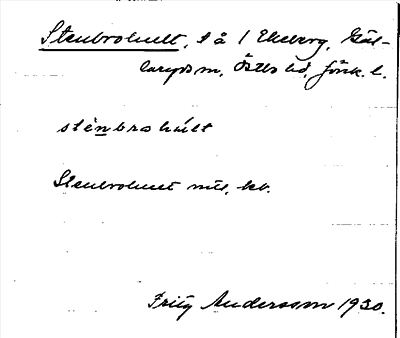 Stenbrohult, s å 1 Ekeberg, Käl-
laryds sn, Östbo hd, Jönk. l.
stènbrohúlt
Stenbrohult mtl, kb.
Fritz Andersson 1930.